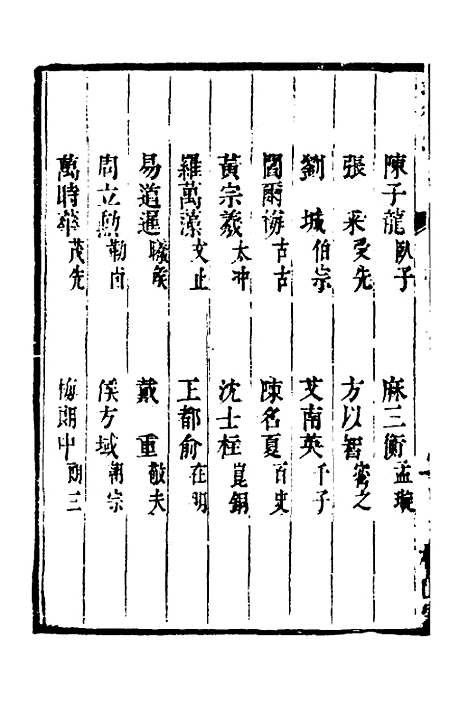 陳子龍 臥子 麻三衡 孟璇
張采 受先 方以智 密之
劉城 伯宗 艾南英 千子
閻爾梅 古古 陳名夏 百史
黃宗羲 太冲 沈士柱 崑銅
羅萬藻 文止 王都俞 在明
易道暹 曦矦 戴重 敬夫
周立勲 勒卣 侯方域 朝宗
萬時華 茂先 梅朗中 朗三